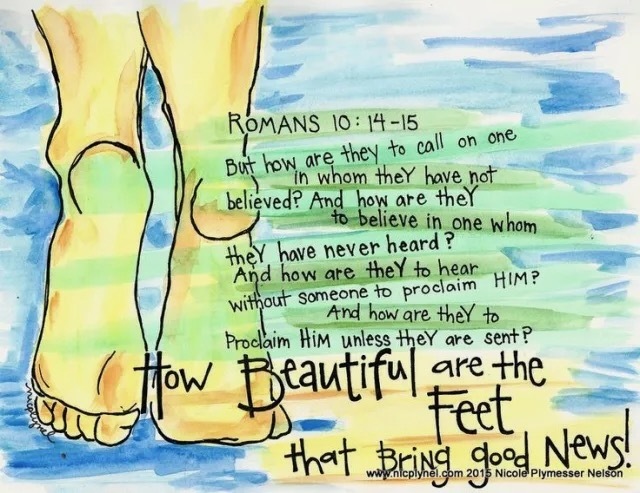 ROMANS 10:14-15
But how are they to call on one
in whom they have not
believed? And how are they
to believe in one whom
they have never heard?
And how are they to hear
without someone to proclaim HIM?
And how are they to
Proclaim HIM unless they are sent?
How Beautiful are the
Feet
that Bring good News!
www.nicplynel.com 2015 Nicole Plymesser Nelson
nicplynel